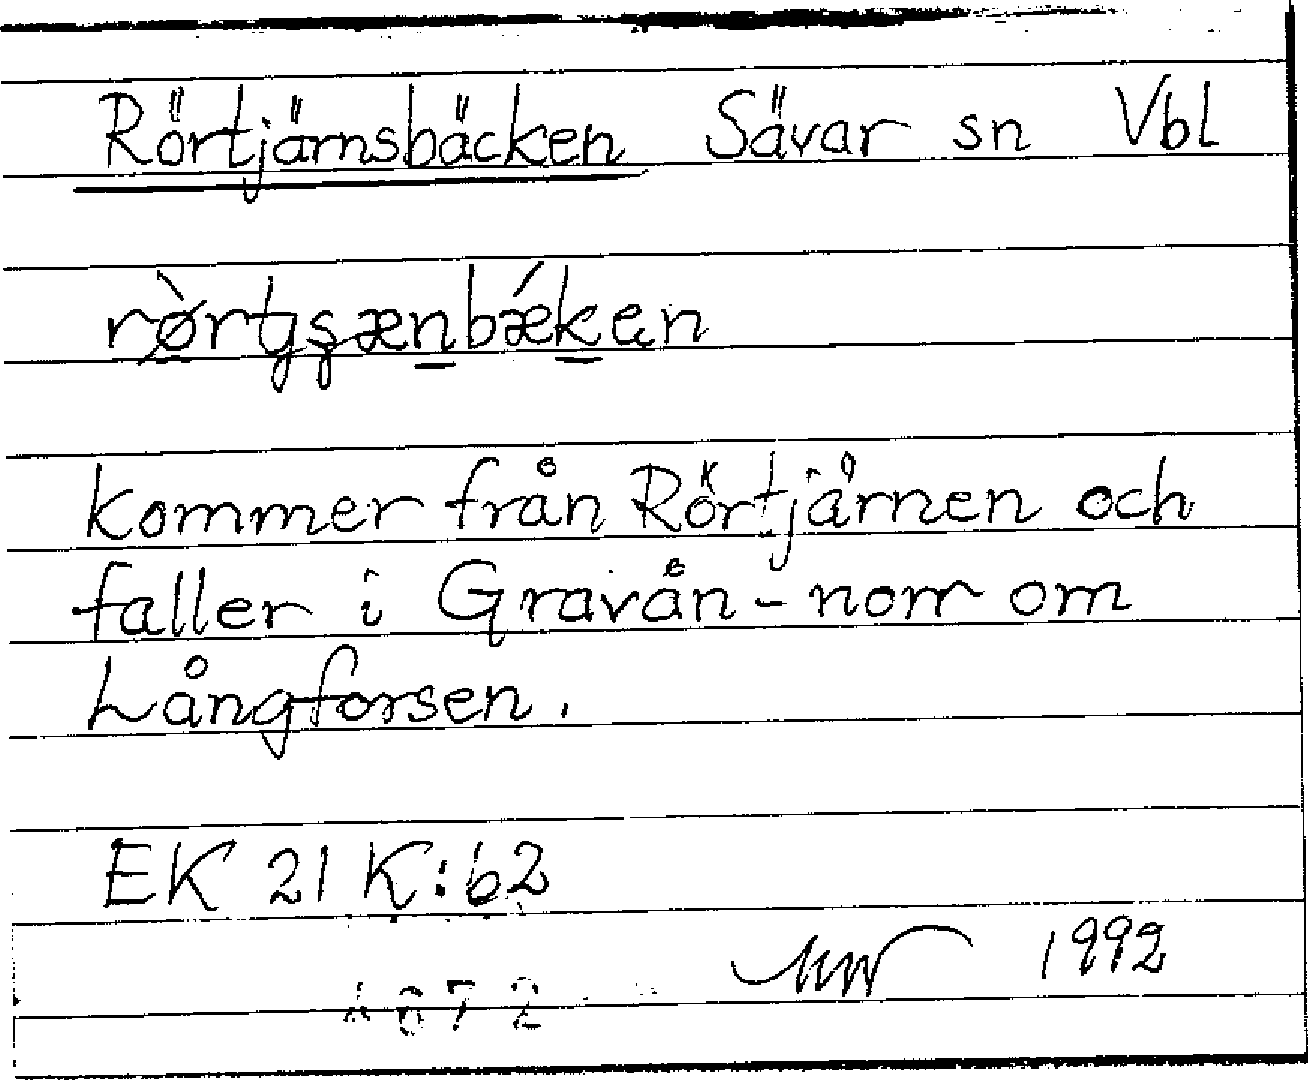 Rörtjärnsbäcken Sävar sn Vbl
kommer från Rörtjärnen och
faller i Gravån - norr om
Långforsen.
EK 21 K:62
1992